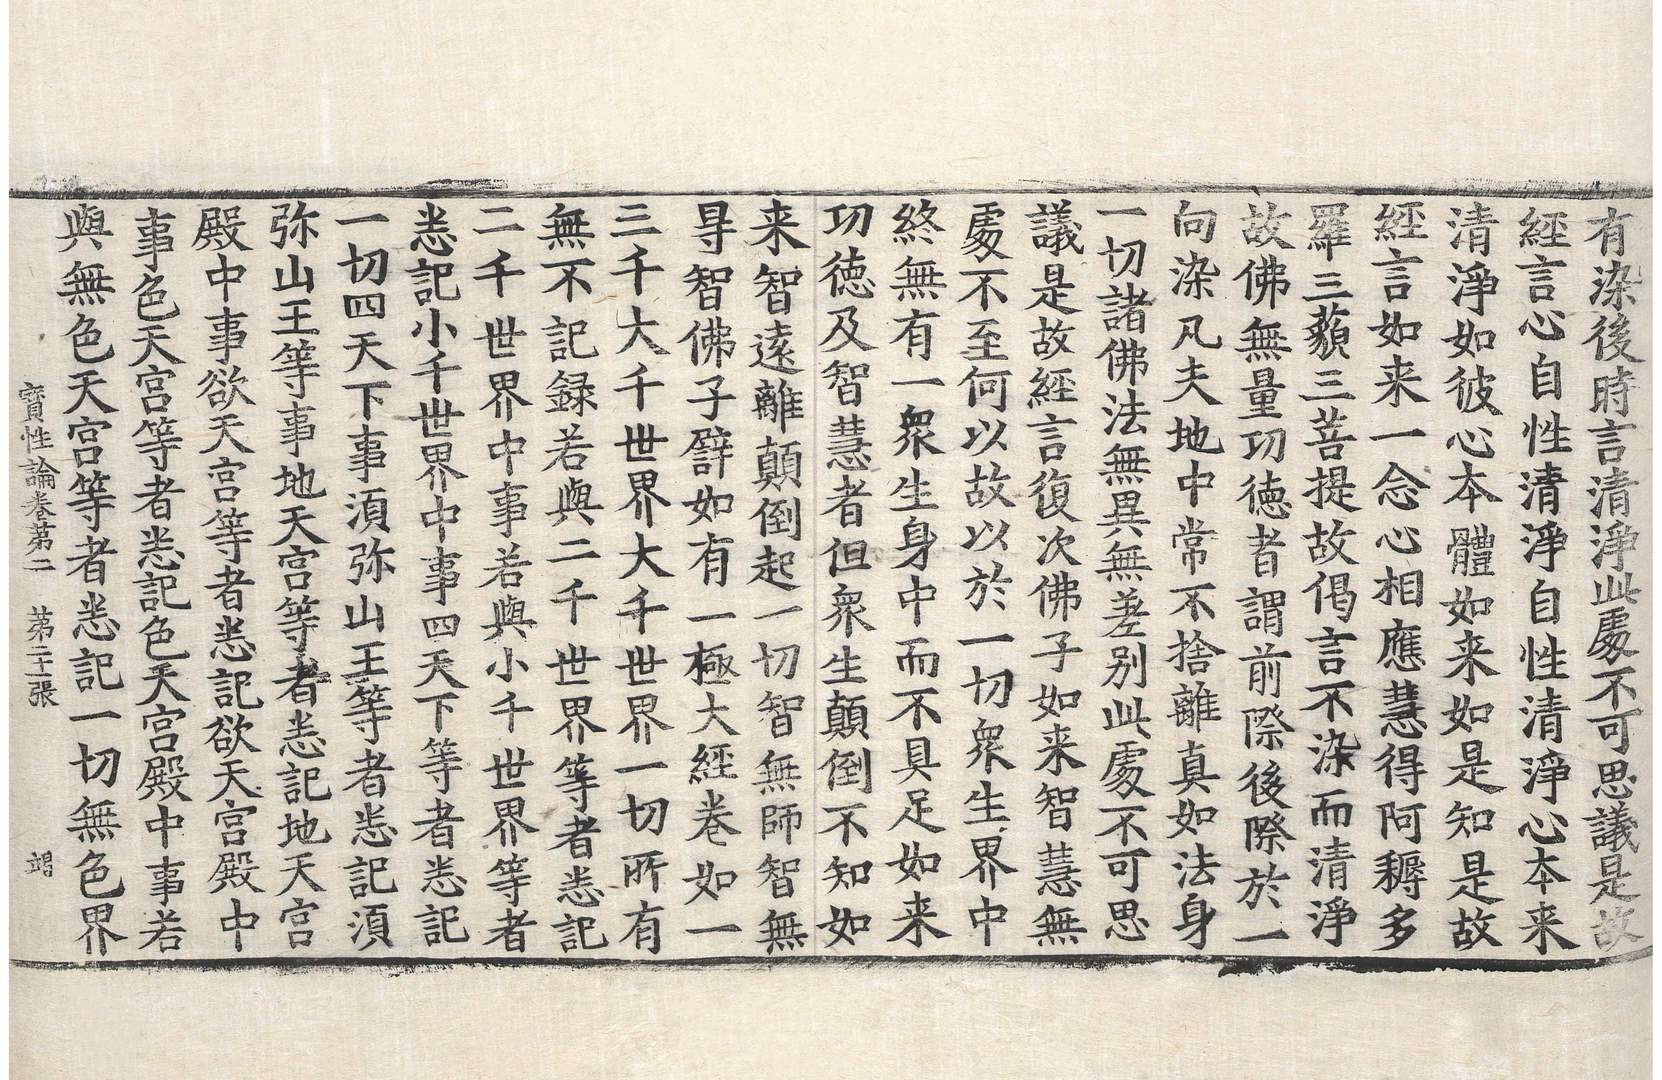 有染後時言清淨此處不可思議是故
經言心自性清淨自性清淨心本来
清淨如彼心本體如来如是知是故
經言如来一念心相應慧得阿耨多
羅三藐三菩提故偈言不染而清淨
故佛無量功徳者謂前際後際於一
向染凡夫地中常不捨離真如法身
一切諸佛法無異無差别此處不可思
議是故經言復次佛子如来智慧無
處不至何以故以於一切衆生界中
終無有一衆生身中而不具足如来
功徳及智慧者但衆生顛倒不知如
来智遠離顛倒起一切智無師智無
㝵智佛子譬如有一極大經卷如一
三千大千世界大千世界一切所有
無不記録若與二千世界等者悉記
二千世界中事若與小千世界等者
悉記小千世界中事四天下等者悉記
一切四天下事湏弥山王等者悉記湏
弥山王等事地天宫等者悉記地天宫
殿中事欲天宫等者悉記欲天宫殿中
事色天宫等者悉記色天宫殿中事若
與無色天宫等者悉記一切無色界
寶性論卷第二　第二十張